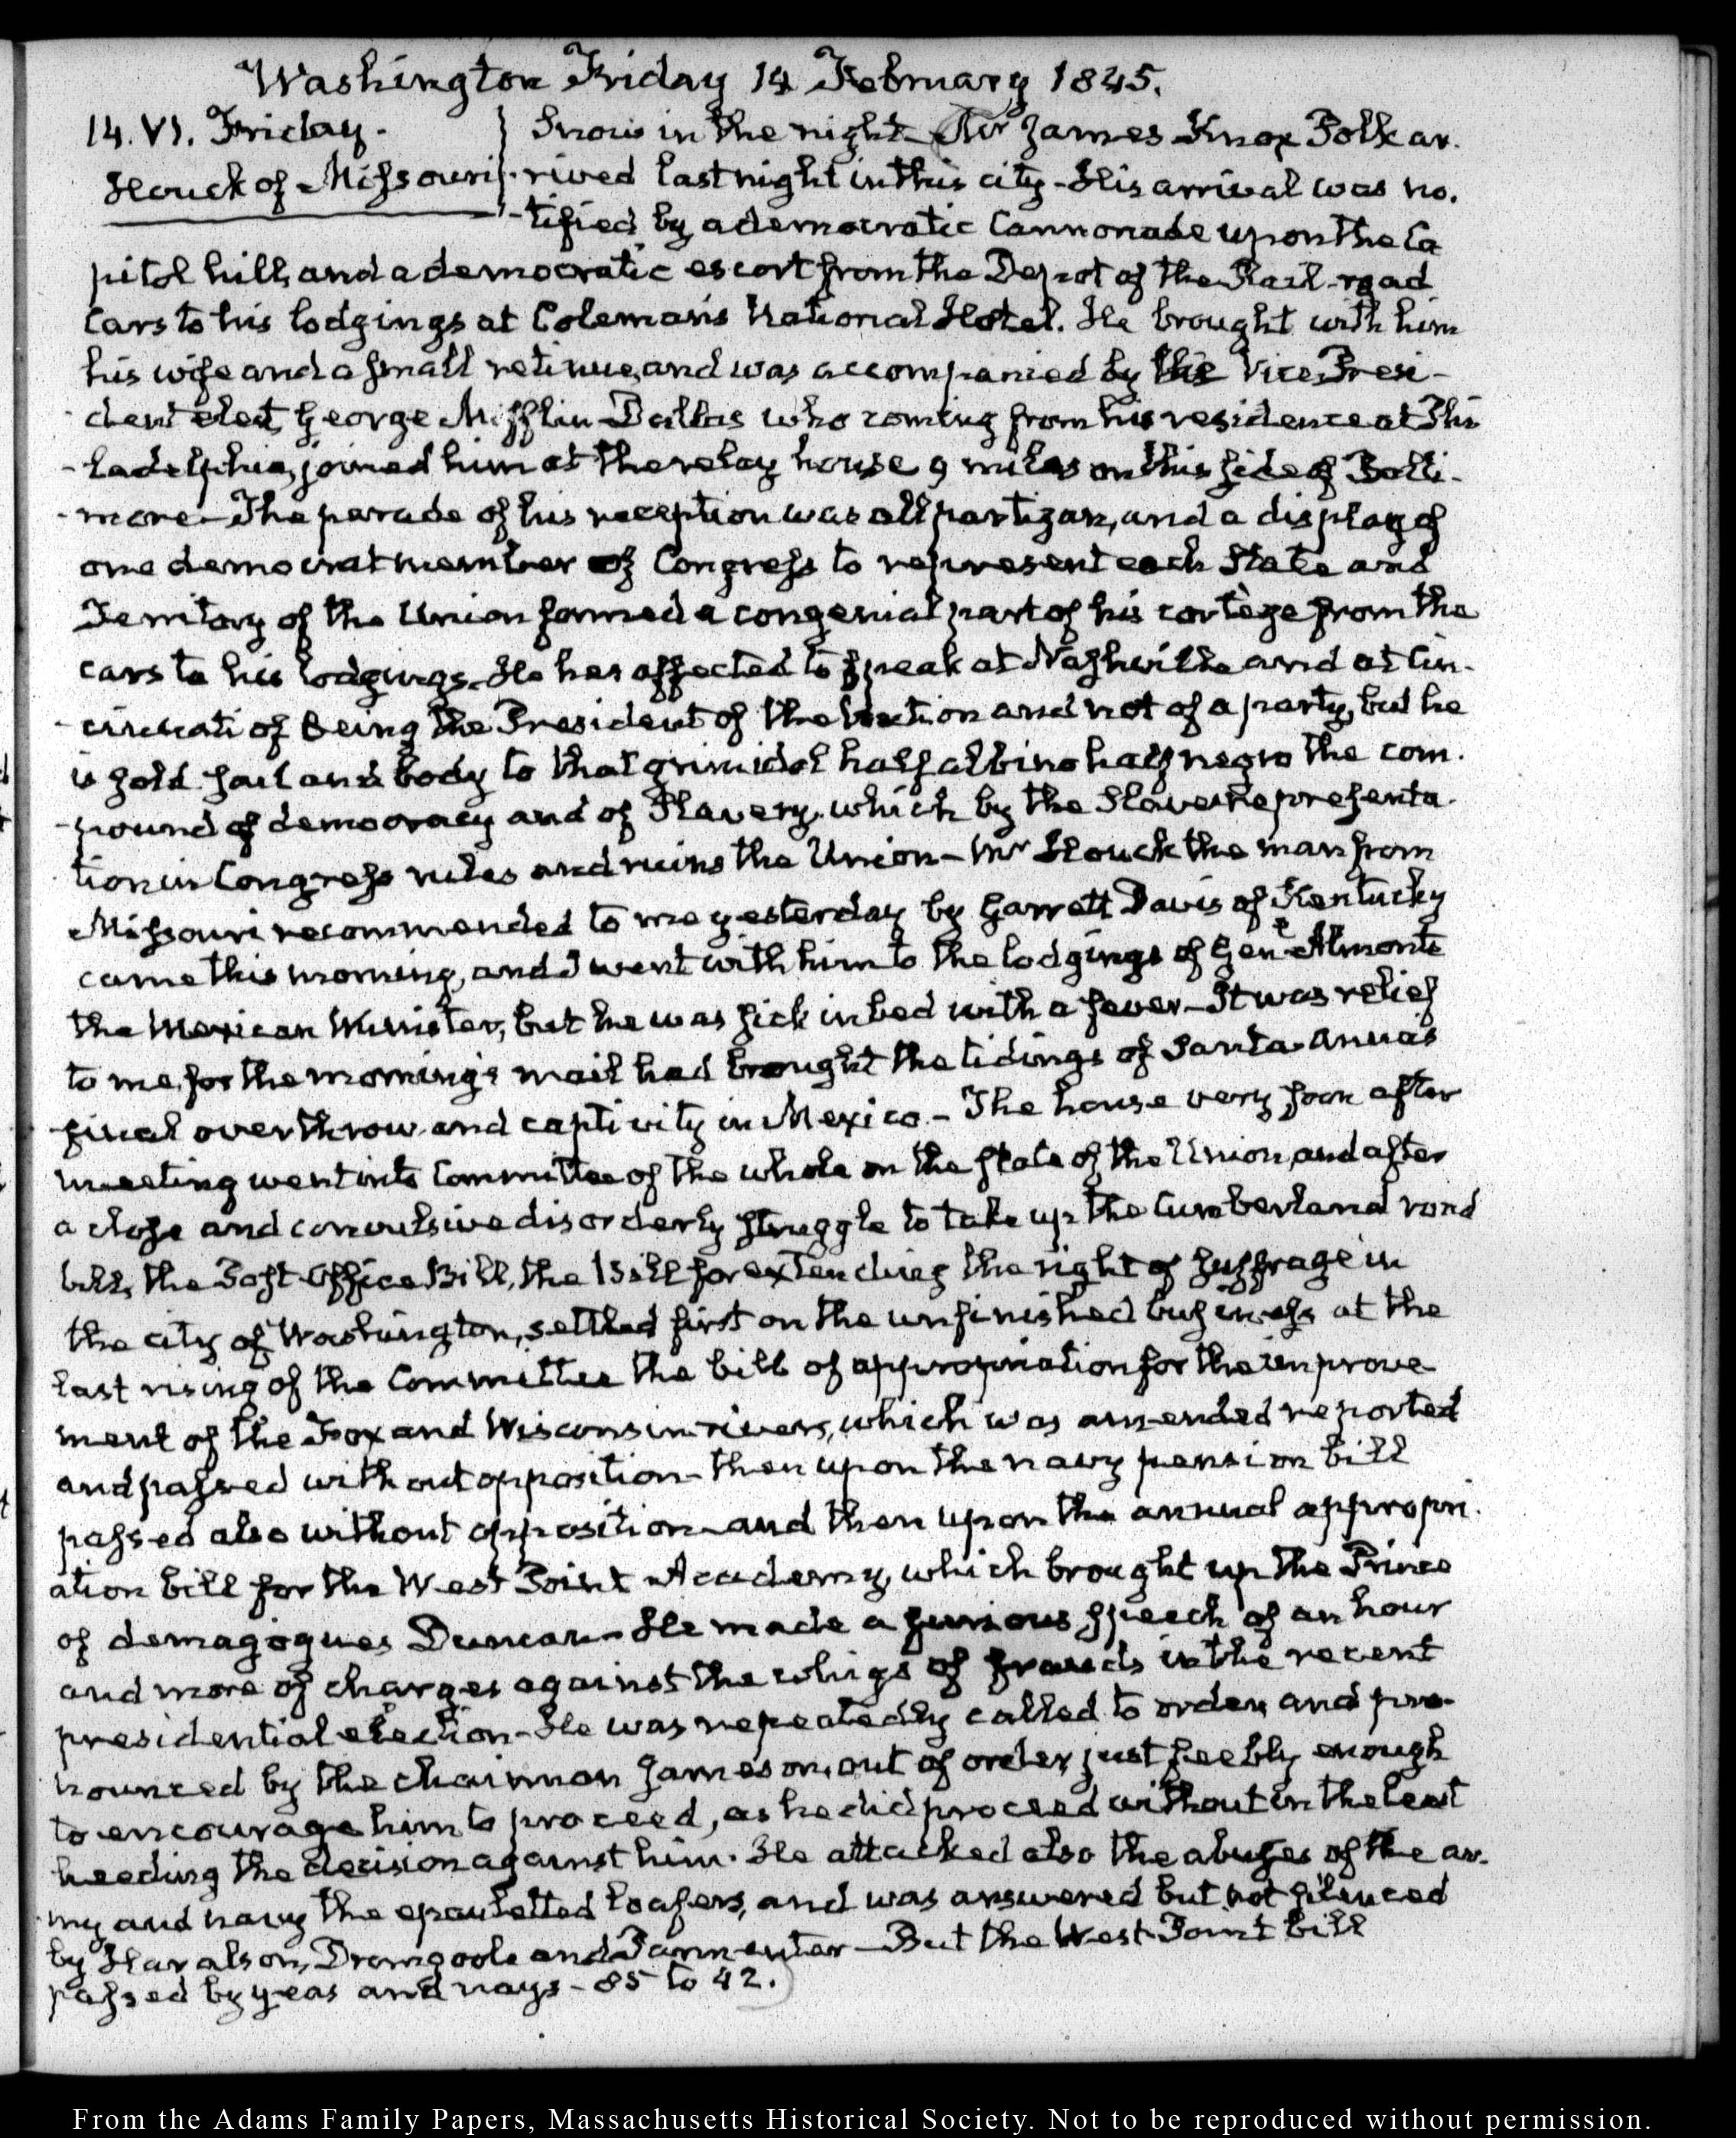 Washington Friday 14 February 1845.
14. VI. Friday.
Houck of Missouri
Snow in the night. Mr James Knox Polk ar-
rived last night in this city. His arrival was no-
tified by a democratic Cannonade upon the Ca
pitol hill, and a democratic escort from the Depot of the Rail-road
Cars to his lodgings at Coleman's National Hotel. He brought with him
his wife and a small retinue, and was accompanied by the Vice Presi-
dent elect, George Mifflin Dallas who coming from his residence at Phi
-ladelphia, joined him at the relay house 9 miles on this side of Balti-
-more. The parade of his reception was all partizan, and a display of
one democrat member of Congress to represent each State and
Territory of the Union formed a congenial part of his cortège from the
cars to his lodgings. He has affected to speak at Nashville and at Cin-
-cinnati of being the President of the Nation and not of a party, but he
is sold soul and body to that grim idol half albino half negro the com-
-pound of democracy and of Slavery, which by the Slave Representa-
tion in Congress rules and ruins the Union - Mr Houck the man from
Missouri recommended to me yesterday by Garrett Davis of Kentucky
came this morning, and I went with him to the lodgings of Gen.l Almonte
the Mexican Minister, but he was sick in bed with a fever - It was relief
to me, for the morning's mail had brought the tidings of Santa-Anna's
final overthrow and captivity in Mexico. - The house very soon after
meeting went into Committee of the whole on the state of the Union, and after
a close and convulsive disorderly struggle to take up the Cumberland road
bill, the Post-Office Bill, the Bill for extending the right of suffrage in
the city of Washington, settled first on the unfinished business at the
last rising of the Committee the bill of appropriation for the improve
ment of the Fox and Wisconsin rivers, which was amended reported
and passed without opposition - then upon the navy pension bill
passed also without opposition - and then upon the annual appropri-
ation bill for the West Point Academy, which brought up the Prince
of demagogues Duncan - He made a furious speech of an hour
and more of charges against the whigs of frauds in the recent
presidential election - He was repeatedly called to order, and pro-
nounced by the chairman Jameson, out of order, just feebly enough
to encourage him to proceed, as he did proceed without in the least
heeding the decision against him. He attacked also the abuses of the ar-
my and navy the epauletted loafers, and was answered but not silenced
by Haralson, Dromgoole and Parmenter - But the West-Point bill
passed by yeas and nays - 85 to 42.
From the Adams Family Papers, Massachusetts Historical Society. Not to be reproduced without permission.